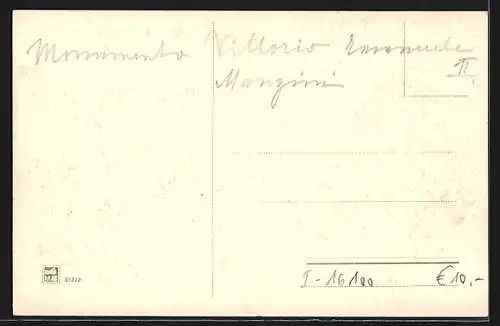 Monumento Vittorio Emanuele
II
Mangini
I-16100 €10,-